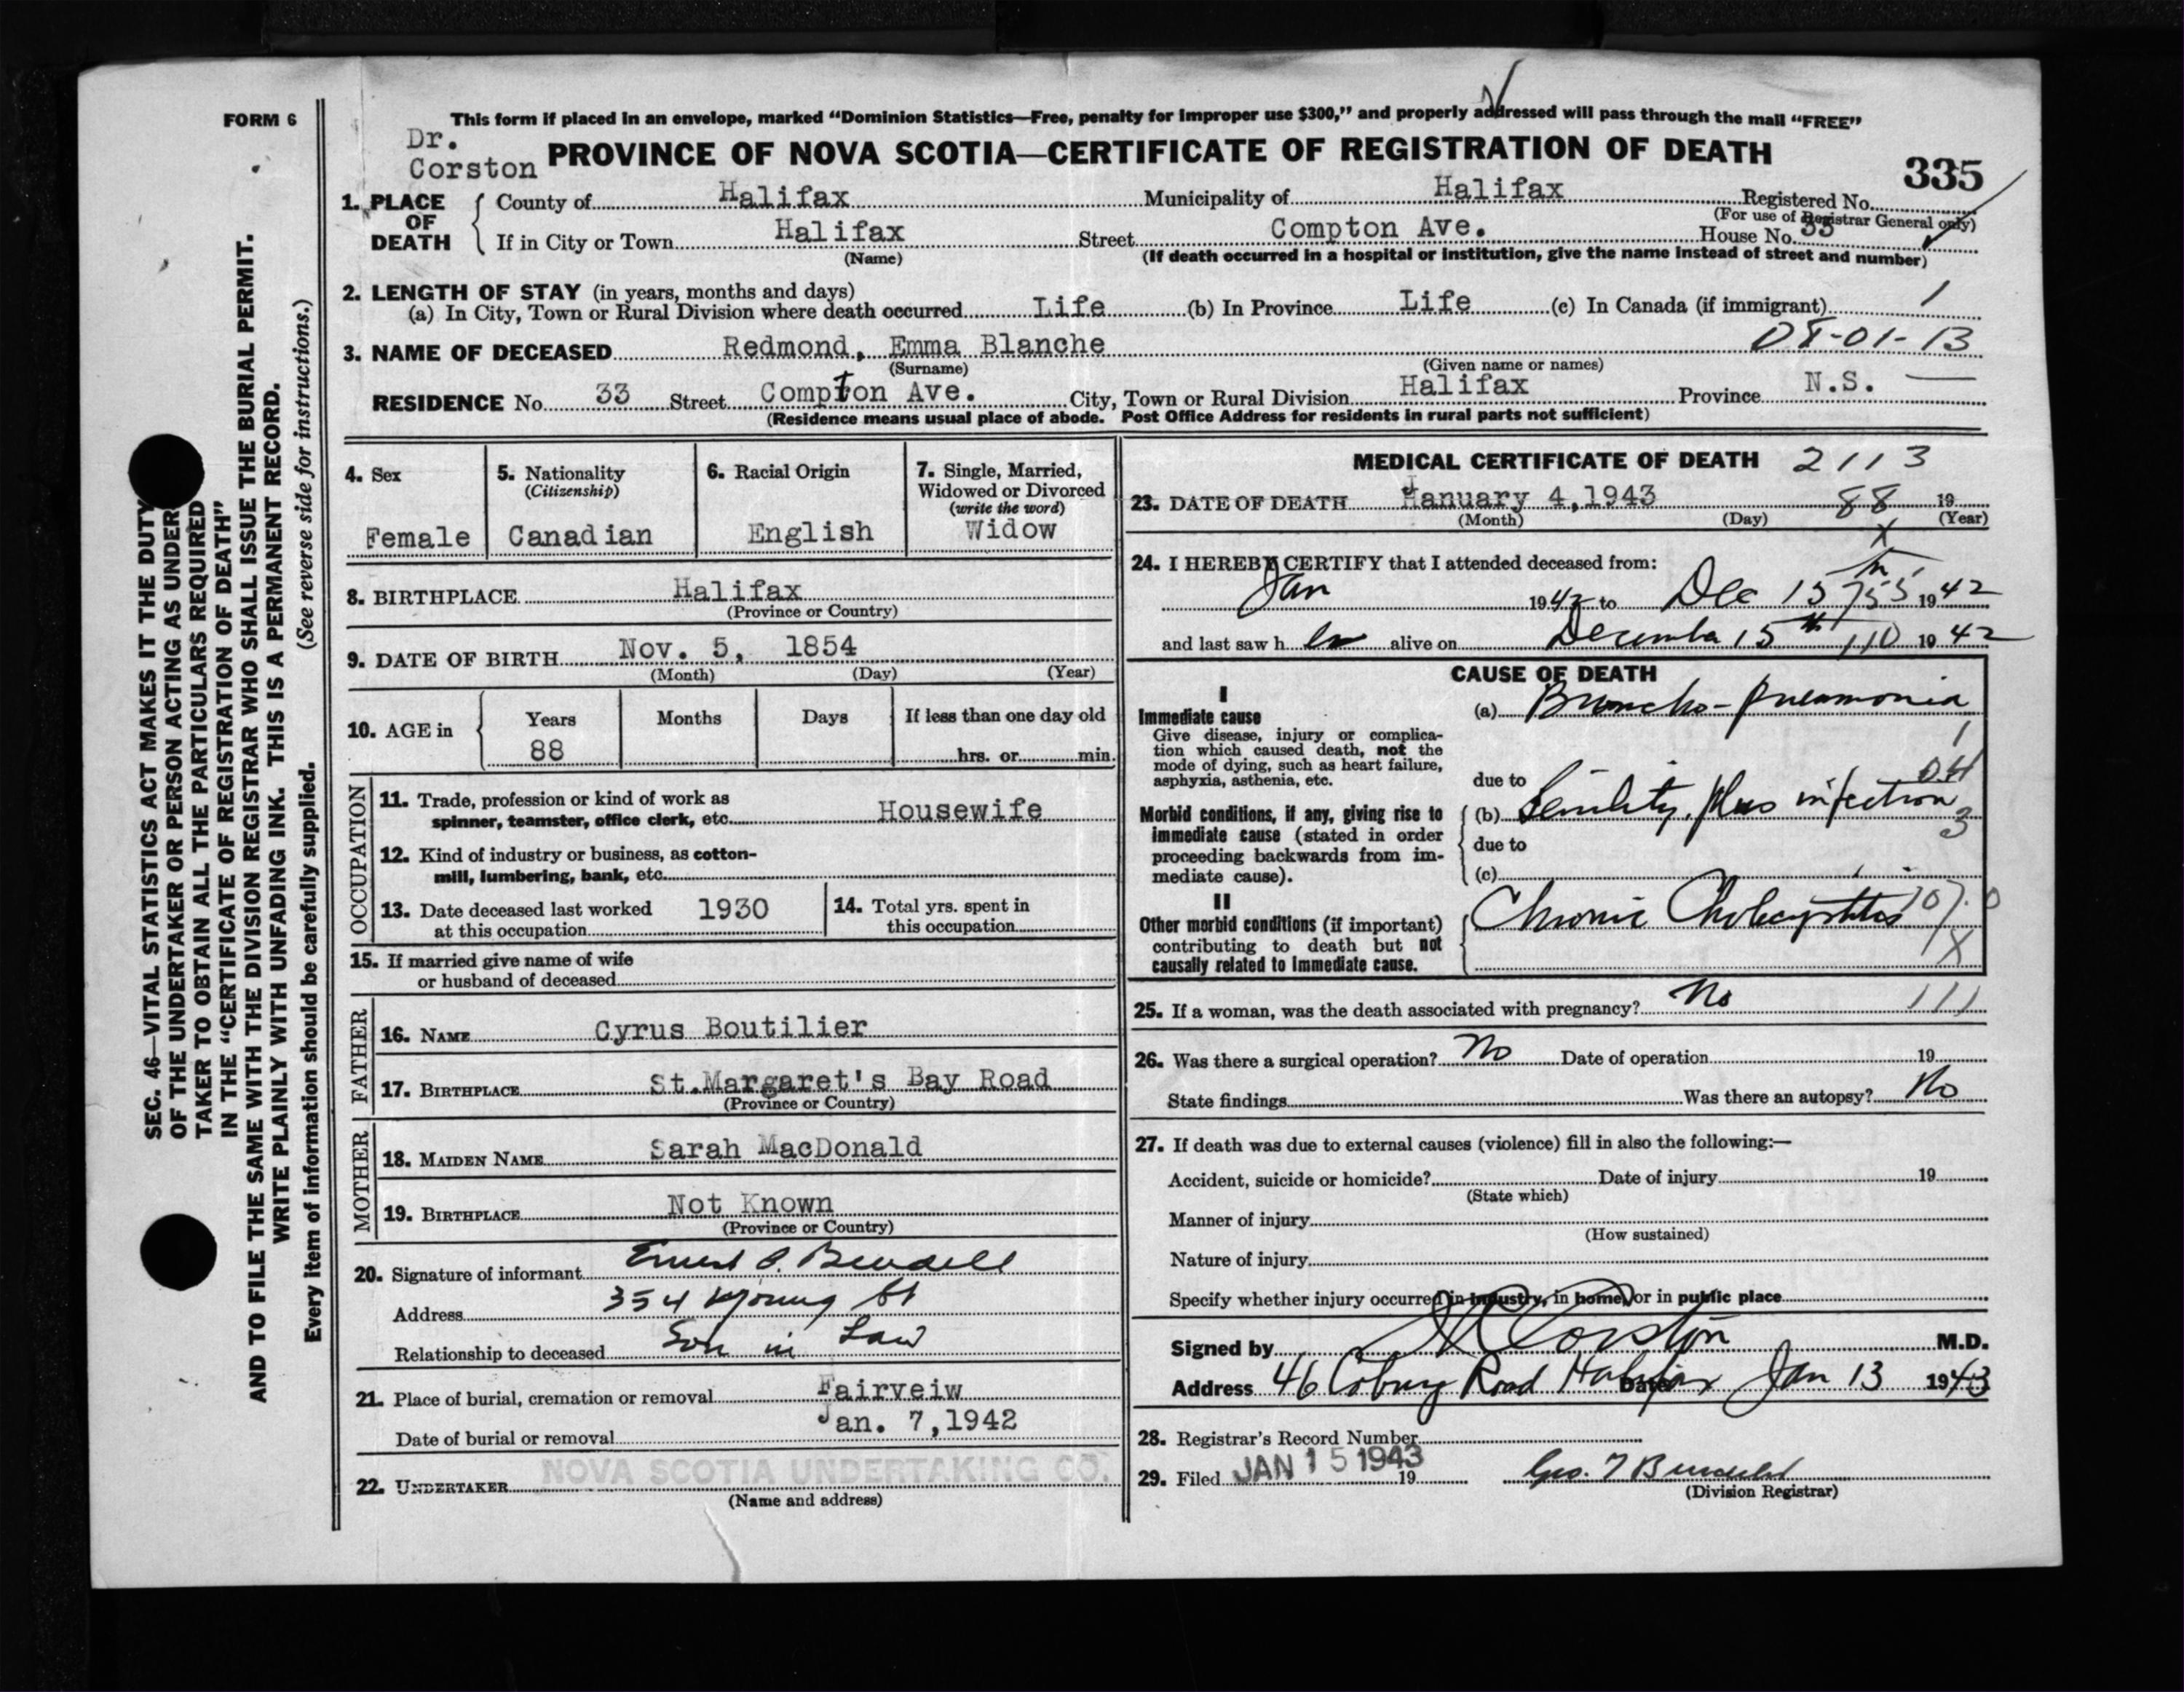 FORM 6
This form if placed in an envelope, marked “Dominion Statistics—Free, penalty for improper use $300,” and properly addressed will pass through the mail “FREE”
Dr.
Corston
PROVINCE OF NOVA SCOTIA—CERTIFICATE OF REGISTRATION OF DEATH
335
1. PLACE OF DEATH
County of Halifax Municipality of Halifax Registered No.
(For use of Registrar General only)
If in City or Town Halifax Street Compton Ave. House No. 33
(Name) (If death occurred in a hospital or institution, give the name instead of street and number)
2. LENGTH OF STAY (in years, months and days)
(a) In City, Town or Rural Division where death occurred Life (b) In Province Life (c) In Canada (if immigrant) 1
3. NAME OF DECEASED Redmond, Emma Blanche 08-01-13
(Surname) (Given name or names)
RESIDENCE No. 33 Street Compton Ave. City, Town or Rural Division Halifax Province N.S.
(Residence means usual place of abode. Post Office Address for residents in rural parts not sufficient)
4. Sex
Female
5. Nationality
(Citizenship)
Canadian
6. Racial Origin
English
7. Single, Married,
Widowed or Divorced
(write the word)
Widow
8. BIRTHPLACE Halifax
(Province or Country)
9. DATE OF BIRTH Nov. 5, 1854
(Month) (Day) (Year)
10. AGE in Years Months Days If less than one day old
88 hrs. or min.
OCCUPATION
11. Trade, profession or kind of work as
spinner, teamster, office clerk, etc. Housewife
12. Kind of industry or business, as cotton-
mill, lumbering, bank, etc.
13. Date deceased last worked
at this occupation 1930
14. Total yrs. spent in
this occupation
15. If married give name of wife
or husband of deceased
FATHER
16. NAME Cyrus Boutilier
17. BIRTHPLACE St.Margaret's Bay Road
(Province or Country)
MOTHER
18. MAIDEN NAME Sarah MacDonald
19. BIRTHPLACE Not Known
(Province or Country)
20. Signature of informant Ernest
Address 354 Young St
Relationship to deceased Son in Law
21. Place of burial, cremation or removal Fairveiw
Date of burial or removal Jan. 7,1942
22. UNDERTAKER NOVA SCOTIA UNDERTAKING CO.
(Name and address)
MEDICAL CERTIFICATE OF DEATH 2113
23. DATE OF DEATH January 4,1943 88 19
(Month) (Day) (Year)
X
24. I HEREBY CERTIFY that I attended deceased from:
Jan 1942 to Dec 15 1942
and last saw h er alive on December 15th 110 1942
CAUSE OF DEATH
I
Immediate cause
Give disease, injury or complica-
tion which caused death, not the
mode of dying, such as heart failure,
asphyxia, asthenia, etc.
(a) Broncho-pneumonia
1
due to
Morbid conditions, if any, giving rise to
immediate cause (stated in order
proceeding backwards from im-
mediate cause).
(b) Senility, plus infection
3
due to
(c)
II
Other morbid conditions (if important)
contributing to death but not
causally related to immediate cause.
Chronic Cholecystitis 107.0
X
25. If a woman, was the death associated with pregnancy? No 111
26. Was there a surgical operation? No Date of operation 19
State findings Was there an autopsy? No
27. If death was due to external causes (violence) fill in also the following:—
Accident, suicide or homicide? Date of injury 19
(State which)
Manner of injury
(How sustained)
Nature of injury
Specify whether injury occurred in industry, in home, or in public place
Signed by Corston M.D.
Address 46 Coburg Road Halifax Date Jan 13 1943
28. Registrar's Record Number
29. Filed JAN 15 1943 19 Geo. T
(Division Registrar)
SEC. 46—VITAL STATISTICS ACT MAKES IT THE DUTY
OF THE UNDERTAKER OR PERSON ACTING AS UNDER
TAKER TO OBTAIN ALL THE PARTICULARS REQUIRED
IN THE “CERTIFICATE OF REGISTRATION OF DEATH”
AND TO FILE THE SAME WITH THE DIVISION REGISTRAR WHO SHALL ISSUE THE BURIAL PERMIT.
WRITE PLAINLY WITH UNFADING INK. THIS IS A PERMANENT RECORD.
Every item of information should be carefully supplied. (See reverse side for instructions.)